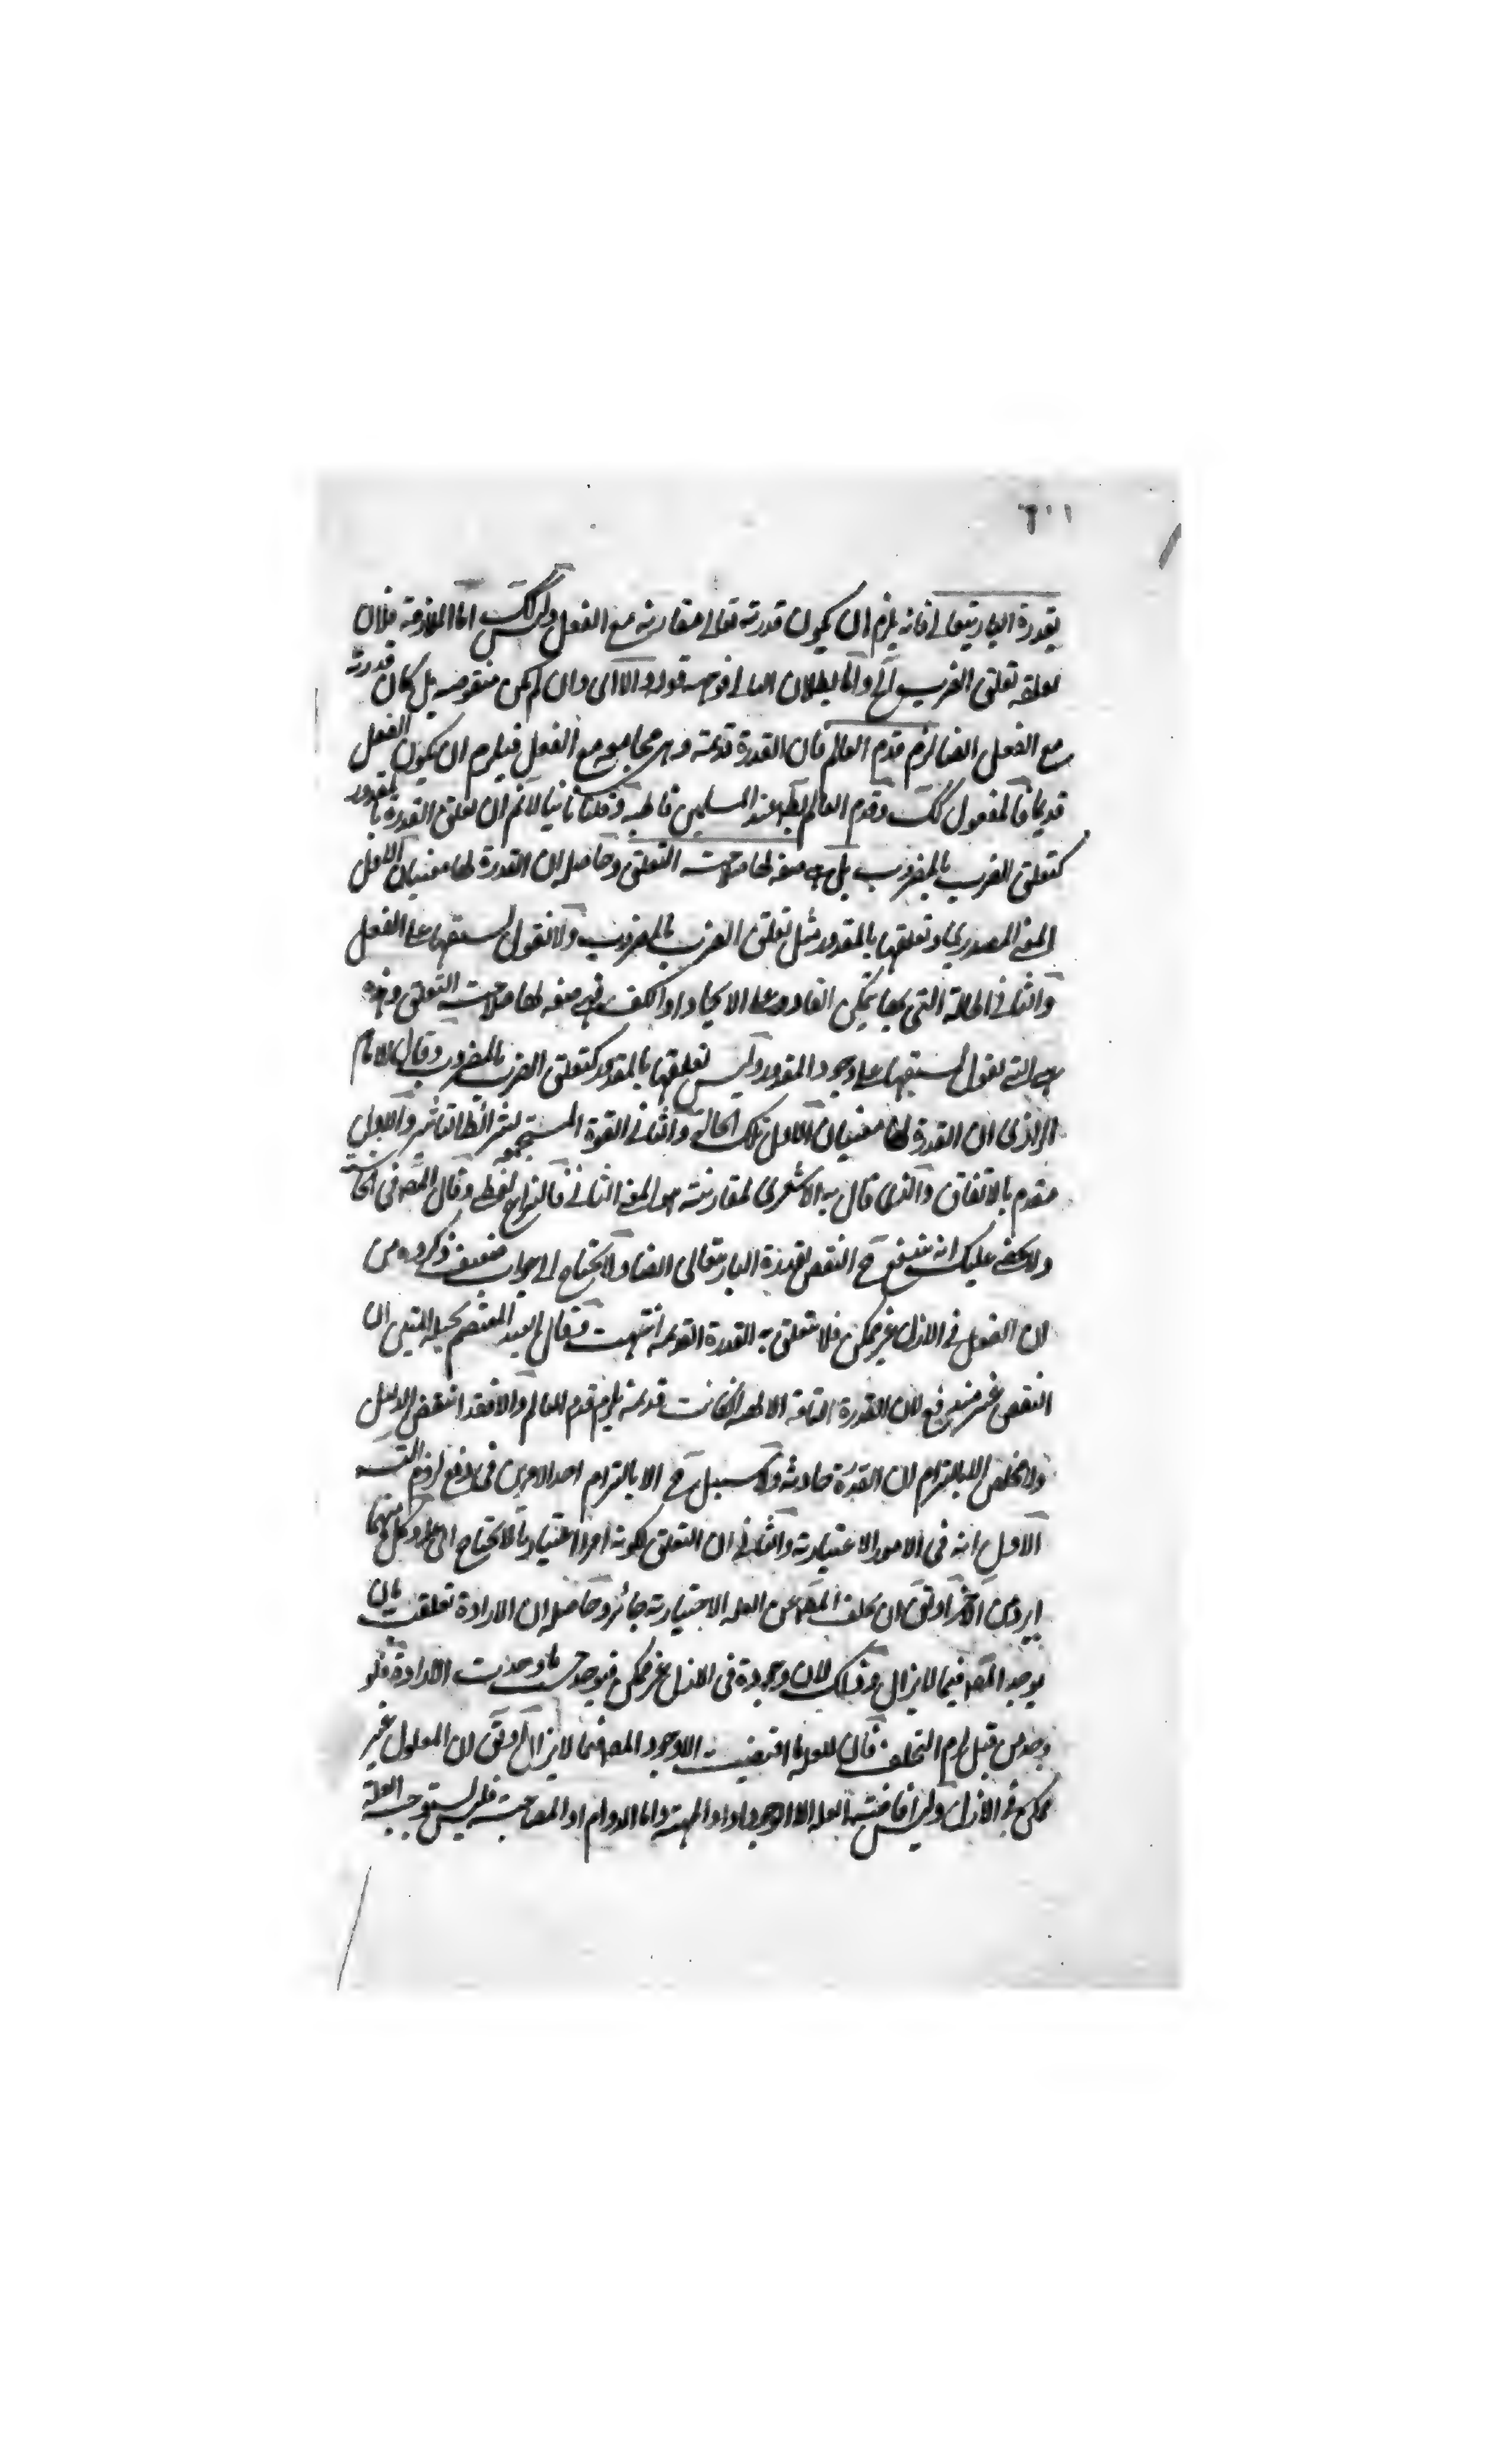 بقدرة الباريتعالى فانه يلزم ان يكون قدرته تعالى مقارنة مع الفعل وليس كك اما الملازمة فلان
تعلقه تعلق الضرب الخ واما بطلان التالي فوجهه قوله والا اى وان لم يكن منقوضه بل كان قدرته
مع الفعل ايضا لزم قدم العالم فان القدرة قديمة وهى مجامعه مع الفعل فيلزم ان يكون الفعل
قديما فالمفعول كك وقدم العالم بط عند المسلمين قاطبه وقلنا ثانيا لانم ان تعلق القدرة بالمقدور
كتعلق الضرب بالمضروب بل هى صفه لها صلاحية التعلق وحاصله ان القدرة لها معنيان الاول
المعنى المصدرى وتعلقها بالمقدور مثل تعلق الضرب بالمضروب ولا نقول بسبقها على الفعل
والثاني الحالة التى بها يتمكن القادر على الايجاد او الكف فهى صفه لها صلاحية التعلق وهذه
هى التى نقول بسبقها على وجود المقدور وليس تعلقها بالمقدور كتعلق الضرب بالمضروب وقال الامام
الرازى ان القدرة لها معنيان الاول تلك الحالة والثاني القوة المستجمعه لشرائط التاثير والاولى
متقدم بالاتفاق والذى قال به الاشعرى لمقارنته هو المعنى الثاني فالنزاع لفظى وقال المصه فى الحاشية
ولا يخفى عليك انه يندفع ح النقض بقدرة الباريتعالى ايضا ولا يحتاج الى جواب ضعيف ذكروه من
ان الفعل فى الازل غير ممكن فلا تتعلق به القدرة القديمه انتهت فقال العبد المعتصم بحبله المتين ان
النقض غير مندفع لان القدرة التامة الالهية ان كانت قديمة يلزم قدم العالم والا فقد انتقض الدليل
ولا مخلص الا بالتزام ان القدرة حادثه ولا سبيل ح الا بالتزام احد الامرين فى دفع لزوم التسـ
الاول انه فى الامور الاعتبارية والثاني ان التعلق لكونه امرا اعتباريا لا يحتاج الى علة وكل منهما
ابرد من الاخر او تق ان تخلف المعـ عن العله الاختيارية جائز وحاصله ان الارادة تعلقت بان
يوجد المعـ فيما لا يزال وذلك لان وجوده فى الازل غير ممكن فيوجد حين ما وجدت الارادة فلو
وجد من قبل لزم التخلف فان العلة ما اقتضت الا وجود المعـ فيما لا يزال او تق ان المعلول غير
ممكن فى الازل وليس افاضة العله الا الوجود او الماهية واما الدوام او المصاحبة فليس يستوجبه العلة